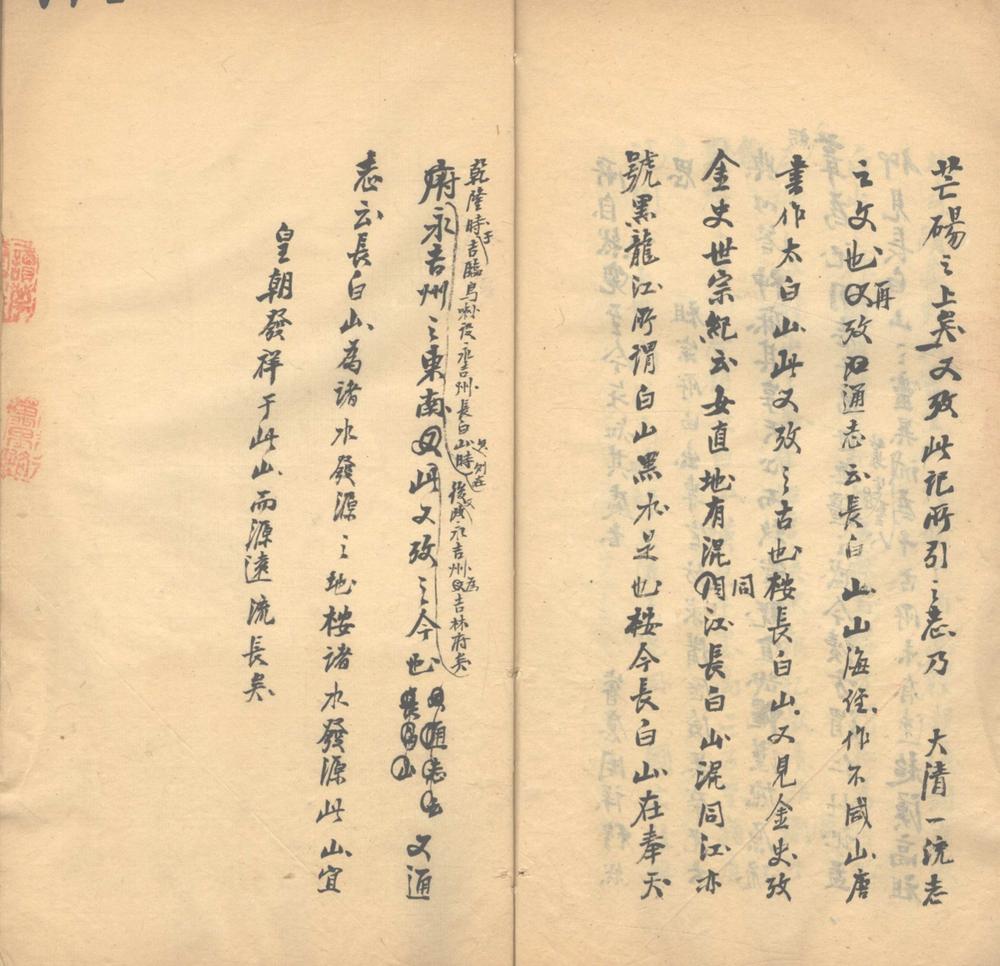 芒碭之上矣又攷此記所引之志乃　大清一統志
之文也再攷通志云長白山山海經作不咸山唐
書作太白山此又攷之古也桉長白山又見金史攷
金史世宗紀云女直地有混同江長白山混同江亦
號黑龍江所謂白山黑水是也桉今長白山在奉天
乾隆時于吉臨烏喇設永吉州長白山時
後改永吉州為吉林府矣
府永吉州之東南此又攷之今也　又通
志云長白山為諸水發源之地桉諸水發源此山宜
皇朝發祥于此山而源遠流長矣